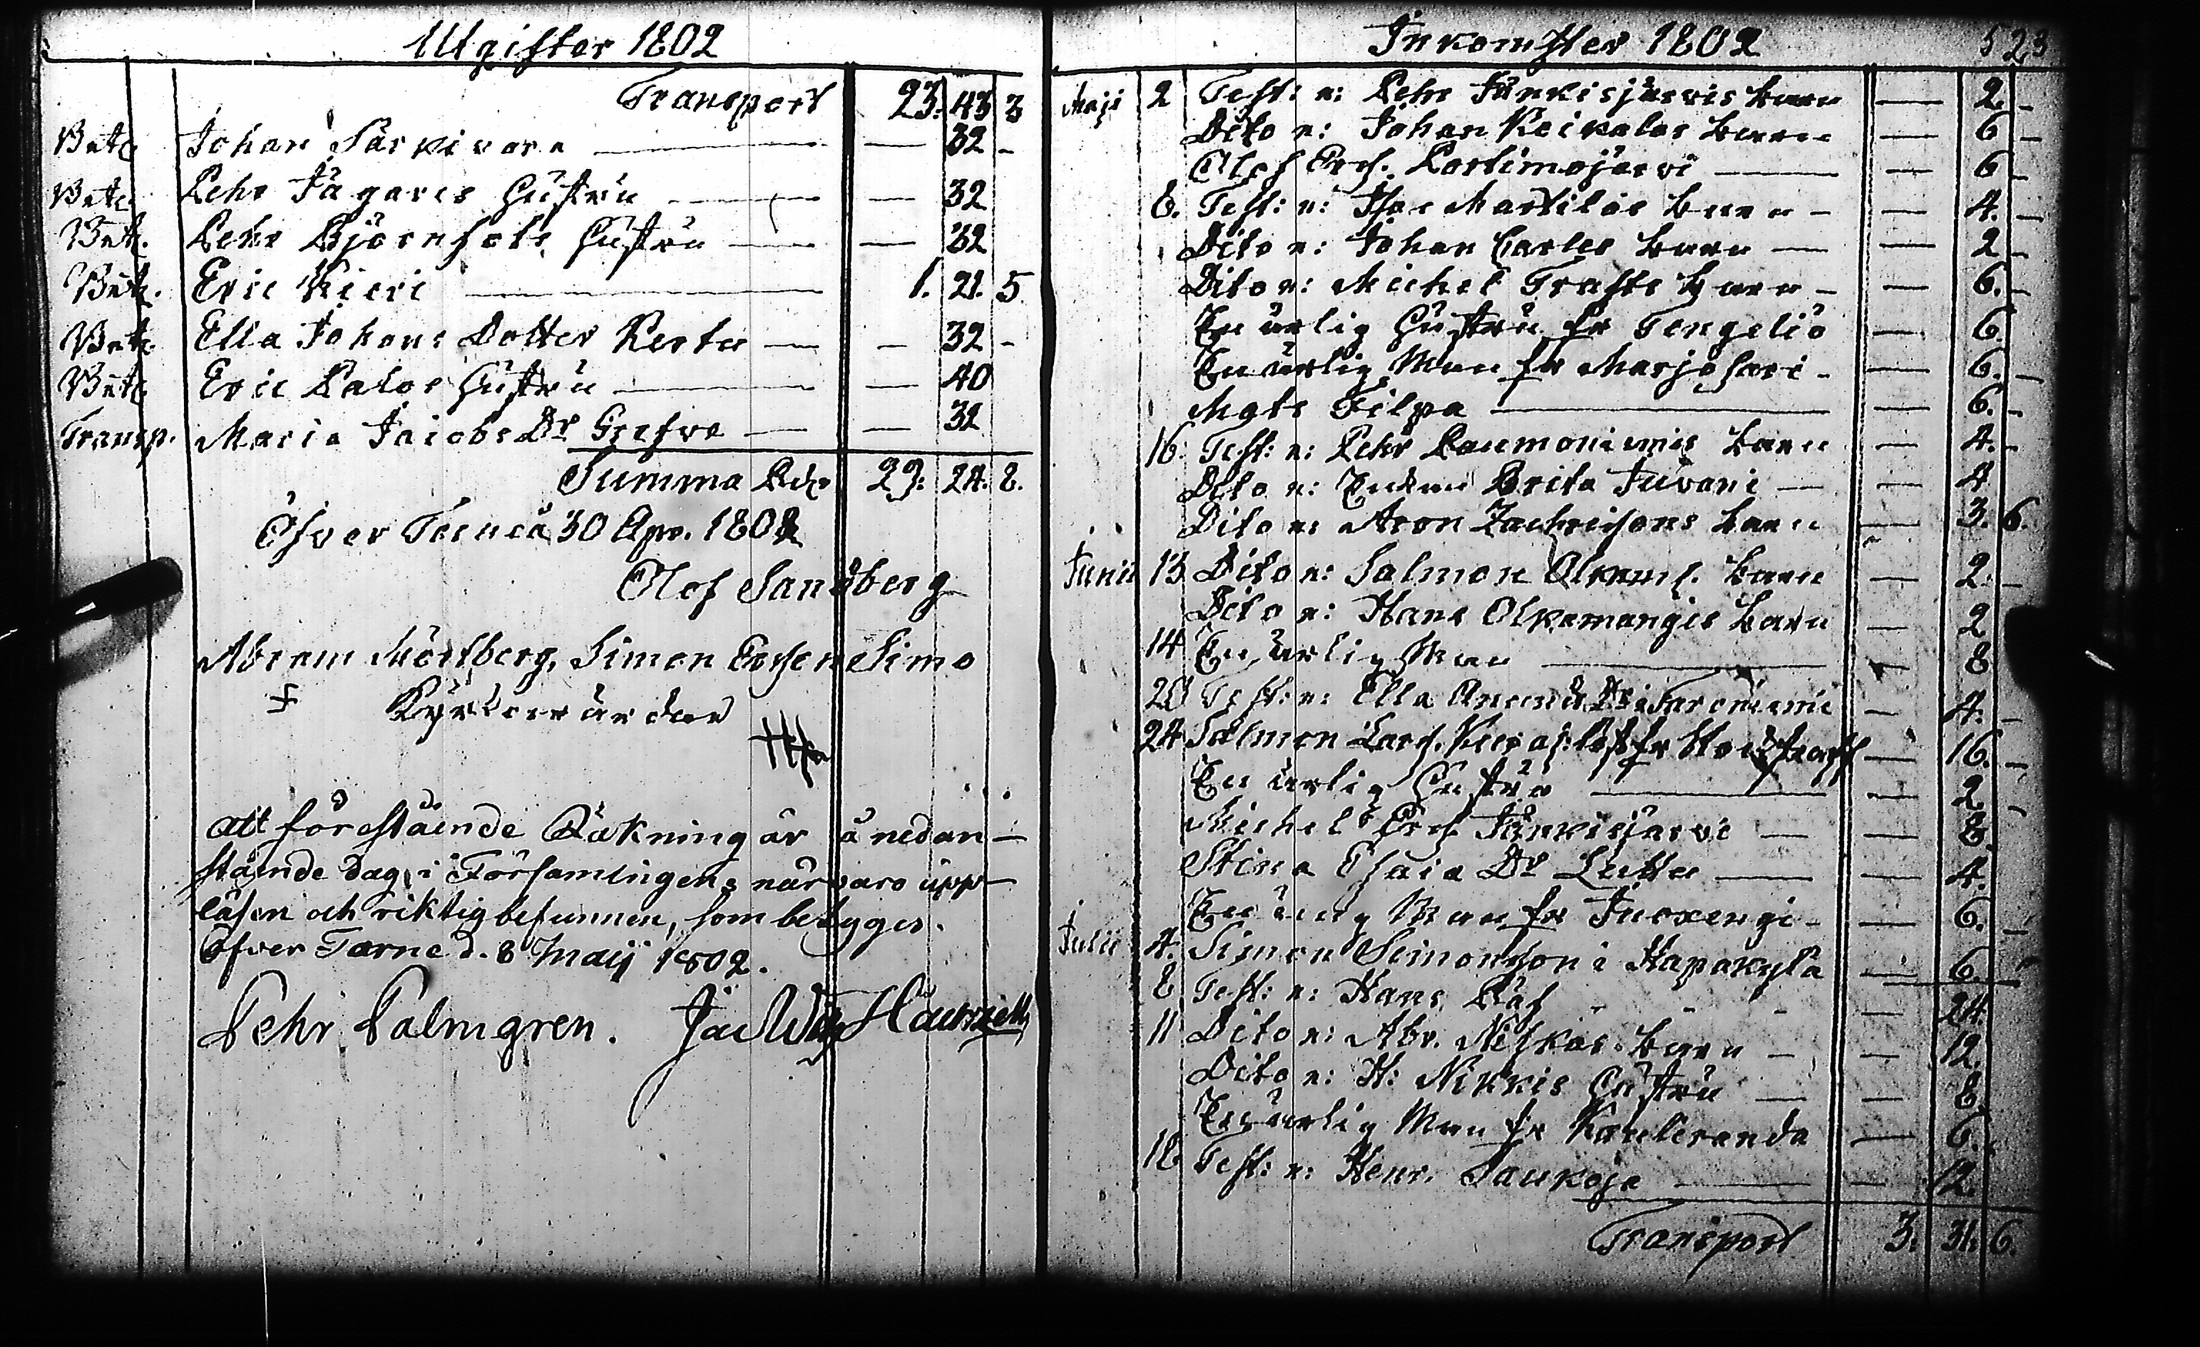 Utgifter 1802
Transport 23. 43 3
Johan Särkivara — — 32 -
Pehr Fägares Hustru — — 32
Pehr Björnfots Hustru — — 32
Eric Kieri — 1. 21. 5
Ella Johans Dotter — — 32 -
Eric Palos Hustru — — 40
Transp. Maria Jacobs Dr Grefve — — 32
Summa Rdr 29. 24. 8.
Öfver Torneå 30 Apr. 1802
Olof Sandberg
Abram Mörtberg, Simon Ersson Simo
Kyrkovärdar
Att föreståènde Räkning är å nedan-
stående dag, i Församlingens närvaro upp-
läsen och riktig befunnen, som betyges.
Öfver Torne d. 8 Maij 1802.
Pehr Palmgren.
Inkomster 1802 523
Maji 2 Test: n: Pehr Junkisjärvis barn — 2. -
Dito n: Johan Keikalas barn — 6 -
Olof Ersf. Portimojärvi — — 6 -
8. Test: n: Isac Martilas barn — — 4. -
Dito n: Johan Carles barn — — 2 -
Dito n: Michel Trasts barn — — 6. -
En ärlig Hustru fr Tengeliö — 6.
En ärlig Man fr Marjosari — — 6. -
Mats Filpa — — 6. -
16. Test: n: Pehr Raumoniemis barn — 4. -
Dito n: Brita Juvani — — 4
Dito n: Aron Zachrissons barn — 3. 6.
Junii 13 Dito n: Salmon barn — 2. -
Dito n: Hans Olkamangis barn — 2
14 En ärlig Man — — 8
20 Test: n: Ella — 4. -
24 Salmon Lars. — 16. -
En ärlig Hustru — — 2 -
Michel Ersf. Junkisjärvi — — 8.
Stina Esaia Dr — — 4.
En ärlig Man fr Juoxengi — 6. -
Julii 4. Simon Simonsson i Hapakylä — 6.
8 Test: n: Hans Räf - - - 24
11 Dito n: Abr. Niskas barn — — 12
Dito n: H: Nikkis Hustru — — 8
En ärlig Man fr Kauliranda — 6.
18 Test: n: Henr. Taukoja — — 12.
Transport 3. 31. 6.